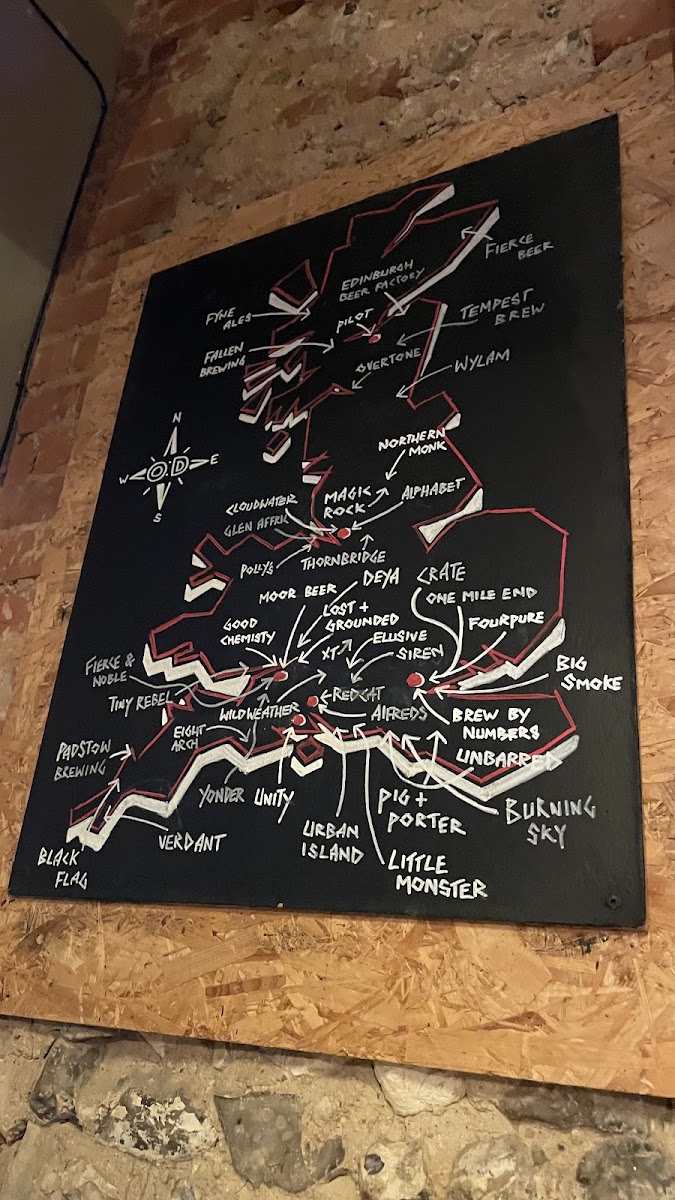 FIERCE
BEER
EDINBURGH
BEER FACTORY
FYNE
ALES
PILOT
TEMPEST
BREW
FALLEN
BREWING
OVERTONE
WYLAM
N
W O.D E
S
NORTHERN
MONK
CLOUDWATER
MAGIC
ROCK
ALPHABET
GLEN AFFRIC
POLLYS
THORNBRIDGE
MOOR BEER
DEYA
CRATE
ONE MILE END
LOST +
GROUNDED
GOOD
CHEMISTY
XT
ELUSIVE
SIREN
FOURPURE
FIERCE &
NOBLE
TINY REBEL
BIG
SMOKE
WILDWEATHER
REDCAT
ALFREDS
BREW BY
NUMBERS
EIGHT
ARCH
PADSTOW
BREWING
UNBARRED
YONDER
UNITY
PIG +
PORTER
BURNING
SKY
URBAN
ISLAND
VERDANT
BLACK
FLAG
LITTLE
MONSTER